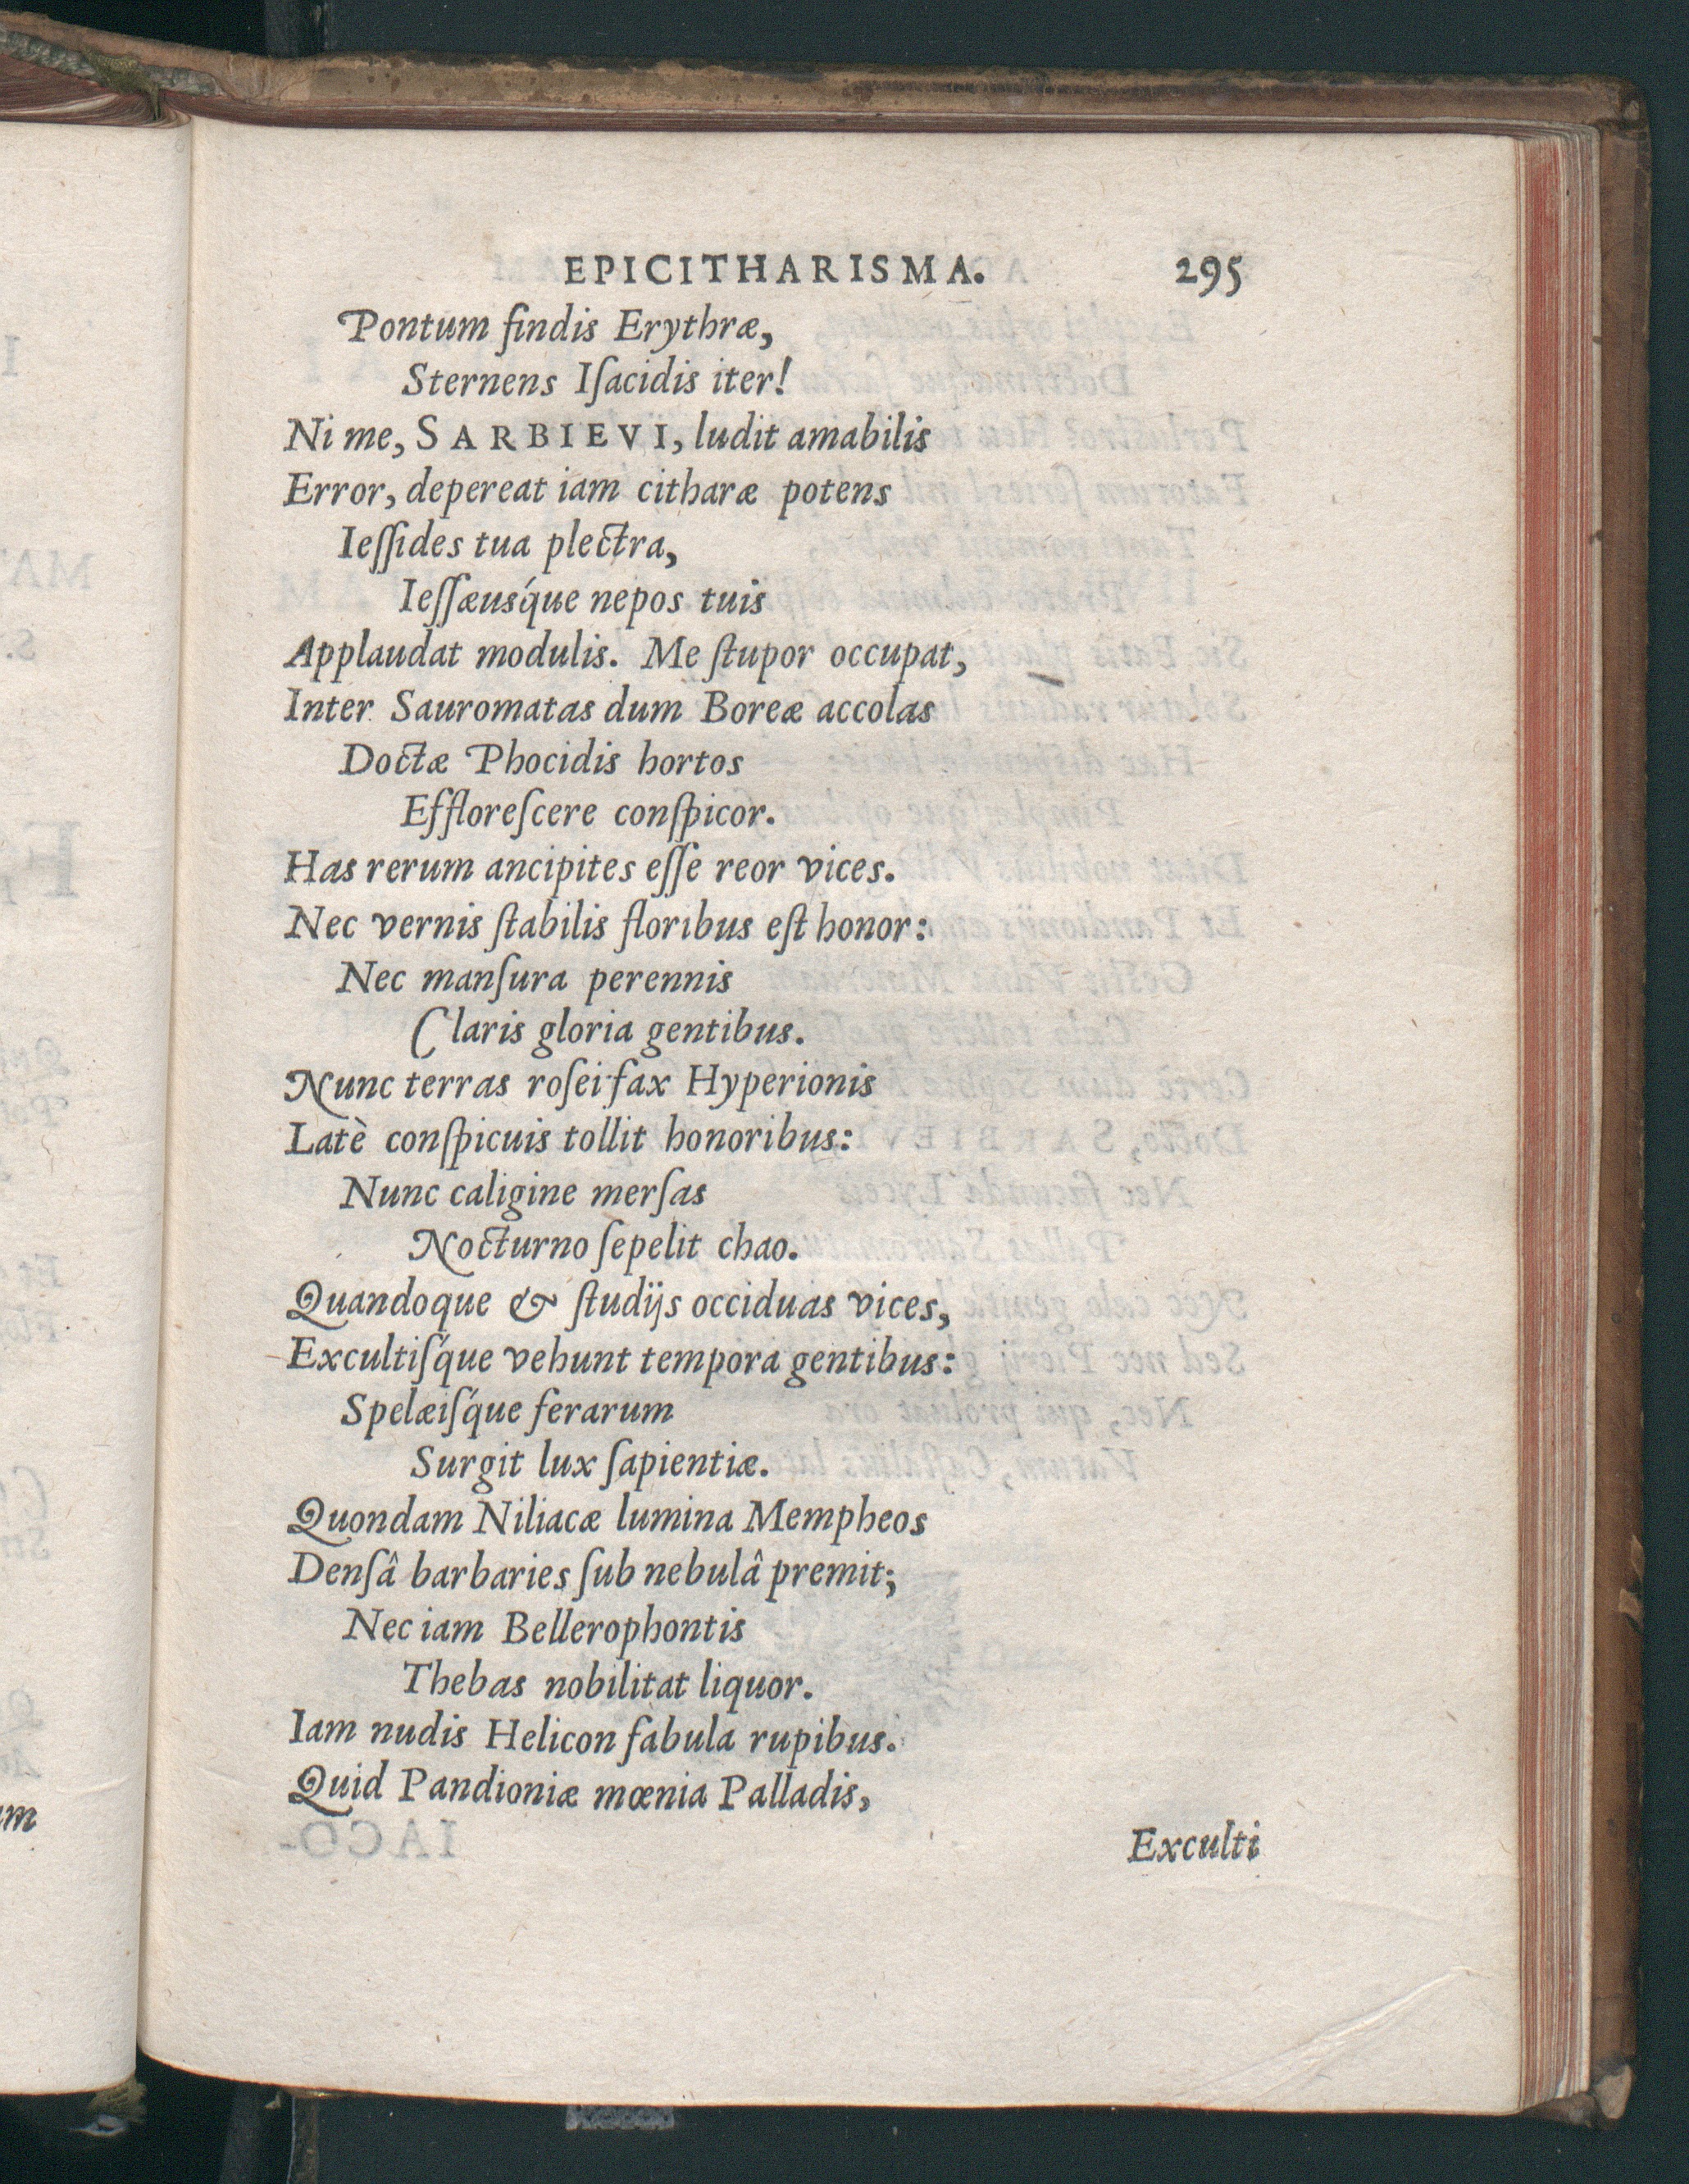 EPICITHARISMA. 295
Pontum findis Erythræ,
Sternens Iſacidis iter!
Ni me, SARBIEVI, ludit amabilis
Error, depereat iam citharæ potens
Ieſſides tua plectra,
Ieſſæusq́ue nepos tuis
Applaudat modulis. Me ſtupor occupat,
Inter Sauromatas dum Boreæ accolas
Doctæ Phocidis hortos
Effloreſcere conſpicor.
Has rerum ancipites eſſe reor vices.
Nec vernis ſtabilis floribus eſt honor:
Nec manſura perennis
Claris gloria gentibus.
Nunc terras roſei fax Hyperionis
Latè conſpicuis tollit honoribus:
Nunc caligine merſas
Nocturno ſepelit chao.
Quandoque & ſtudijs occiduas vices,
Excultiſq́ue vehunt tempora gentibus:
Spelæiſq́ue ferarum
Surgit lux ſapientiæ.
Quondam Niliacæ lumina Mempheos
Denſâ barbaries ſub nebulâ premit;
Nec iam Bellerophontis
Thebas nobilitat liquor.
Iam nudis Helicon fabula rupibus.
Quid Pandioniæ mœnia Palladis,
Exculti